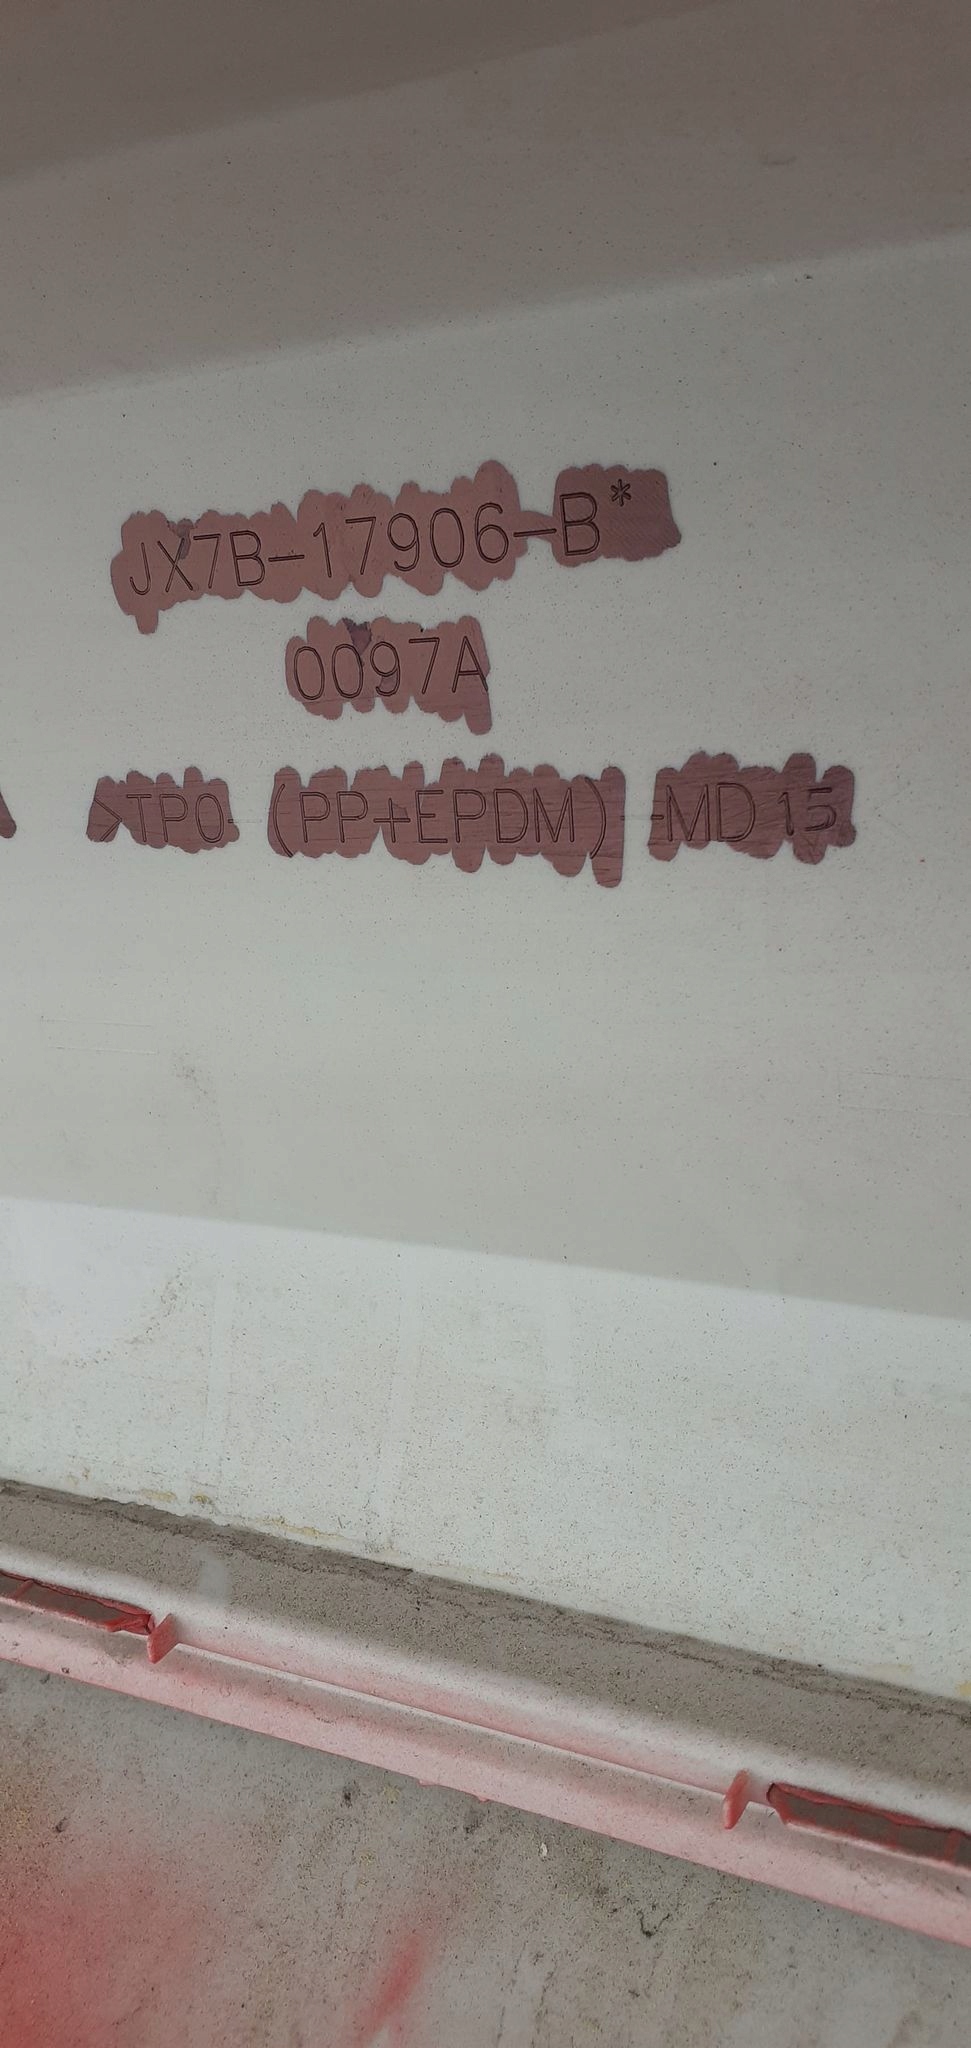 JX7B-17906-B*
0097A
>TPO (PP+EPDM)-MD15